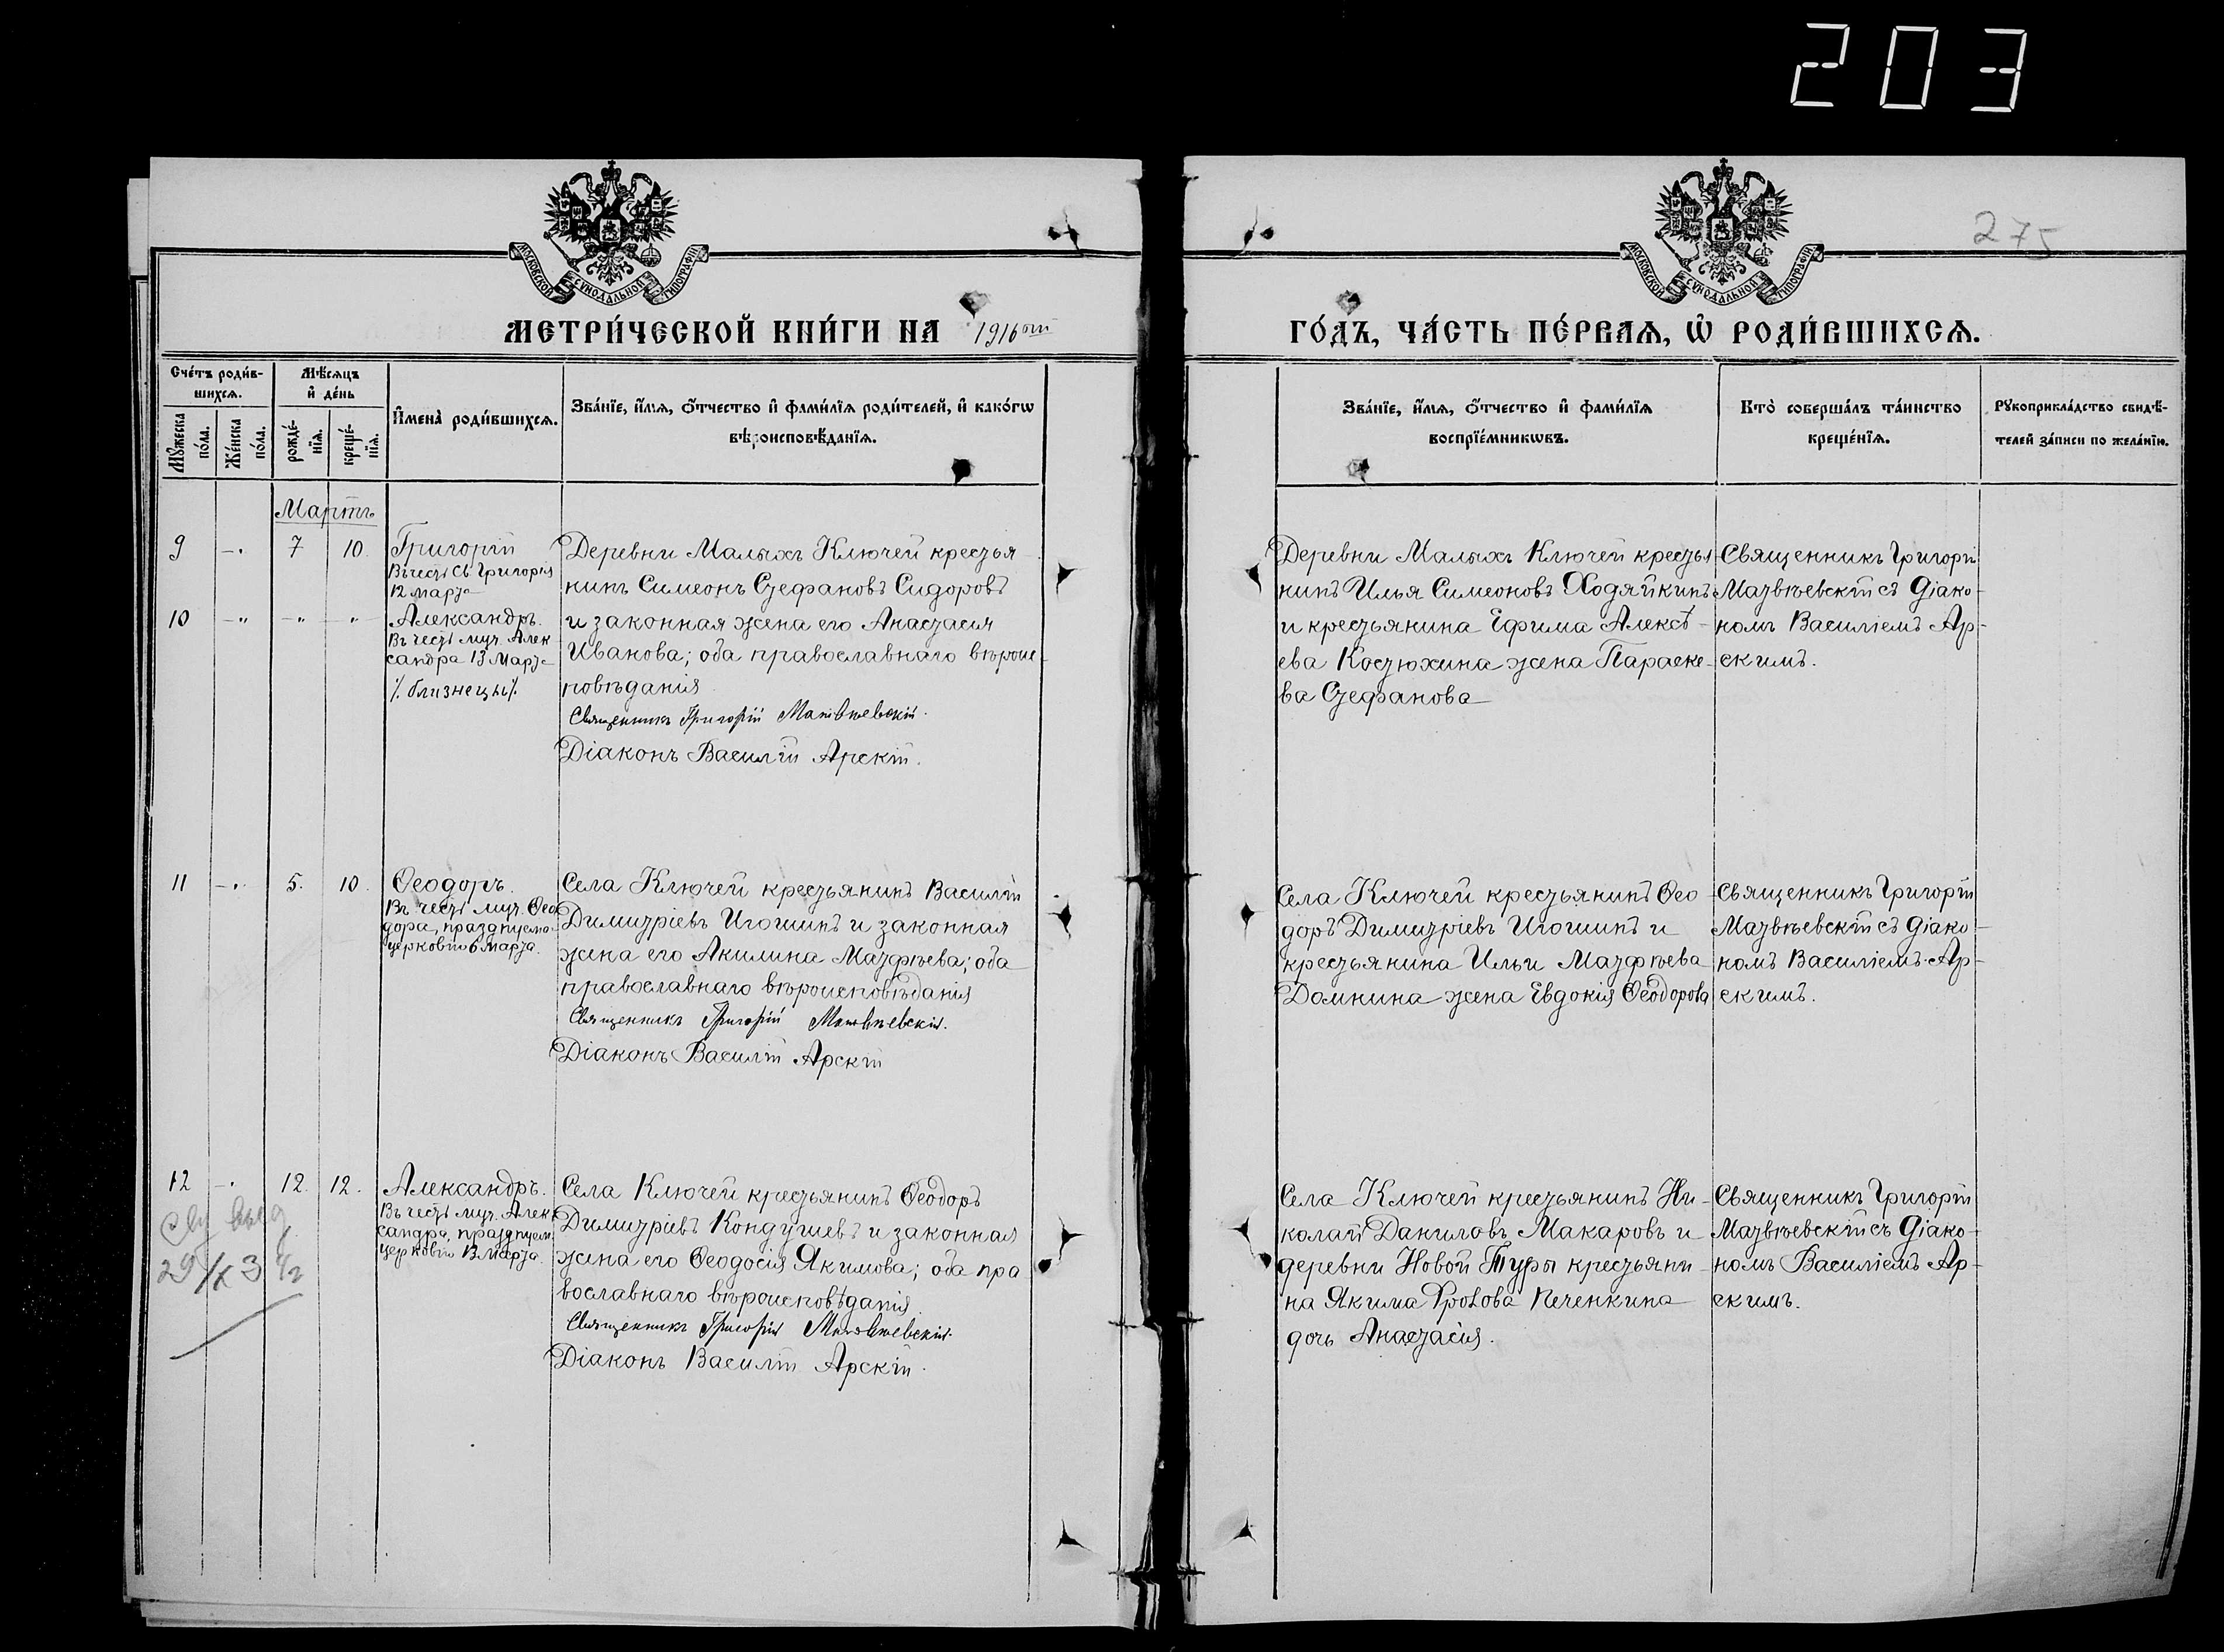 203
МОСКОВСКОЙ СѴНОДАЛЬНОЙ ТИПОГРАФІИ
МОСКОВСКОЙ СѴНОДАЛЬНОЙ ТИПОГРАФІИ
275
МЕТРИ́ЧЕСКОЙ КНИ́ГИ НА 1916ый
ГО́ДЪ, ЧА́СТЬ ПЕ́РВАѦ, Ѽ РОДИ́ВШИХСѦ.
Сче́тъ роди́в-
шихсѧ.
Мѣ́сѧцъ
и҆ де́нь
Мꙋжеска
по́ла.
Же́нска
по́ла.
рожде́-
нїѧ.
креще́-
нїѧ.
И҆мена̀ роди́вшихсѧ.
Зва́нїе, и҆́мѧ, ѻ҆́тчество и҆ фами́лїѧ роди́телей, и҆ како́гѡ
вѣроисповѣ́данїѧ.
Зва́нїе, и҆́мѧ, ѻ҆́тчество и҆ фами́лїѧ
воспрїе́мникѡвъ.
Кто̀ соверша́лъ та́инство
креще́нїѧ.
Рꙋкоприкла́дство свидѣ́-
телей за́писи по жела́нїю.
Мартъ
9 -„ 7 10. Григорій
Въ честь Св. Григорія
12 марта
10 -„ -„ „ Александръ.
Въ честь муч. Алек
сандра 13 Марта
/. близнецы /.
Деревни Малыхъ Ключей крестья
нинъ Симеонъ Стефановъ Сидоровъ
и законная жена его Анастасія
Иванова; оба православнаго вѣроис-
повѣданія
Священникъ Григорій Матвѣевскій.
Діаконъ Василій Арскій.
Деревни Малыхъ Ключей крестья
нинъ Илья Симеоновъ Ходяйкинъ
и крестьянина Ефима Алексѣ-
ева Костюхина жена Параске-
ва Стефанова
Священникъ Григорій
Матвѣевскій съ діако-
номъ Василіемъ Ар-
скимъ.
11 -„ 5. 10. Ѳеодоръ.
Въ честь муч. Ѳео
дора, празднуемо
церковію 6 Марта.
Села Ключей крестьянинъ Василій
Димитріевъ Игошинъ и законная
жена его Акилина Матфѣева; оба
православнаго вѣроисповѣданія
Священникъ Григорій Матвѣевскій.
Діаконъ Василій Арскій
Села Ключей крестьянинъ Ѳео
доръ Димитріевъ Игошинъ и
крестьянина Ильи Матфѣева
Домнина жена Евдокія Ѳеодорова
Священникъ Григорій
Матвѣевскій съ діако-
номъ Василіемъ Ар-
скимъ.
12 -„ 12. 12. Александръ.
Въ честь муч. Алек
сандра, празднуем
церковію 13 Марта.
29/X 3
Села Ключей крестьянинъ Ѳеодоръ
Димитріевъ Кондушевъ и законная
жена его Ѳеодосія Якимова; оба пра
вославнаго вѣроисповѣданія
Священникъ Григорій Матвѣевскій.
Діаконъ Василій Арскій.
Села Ключей крестьянинъ Ни-
колай Даниловъ Макаровъ и
деревни Новой Туры крестьяни-
на Якима Фролова Печенкина
дочь Анастасія.
Священникъ Григорій
Матвѣевскій съ діако-
номъ Василіемъ Ар-
скимъ.